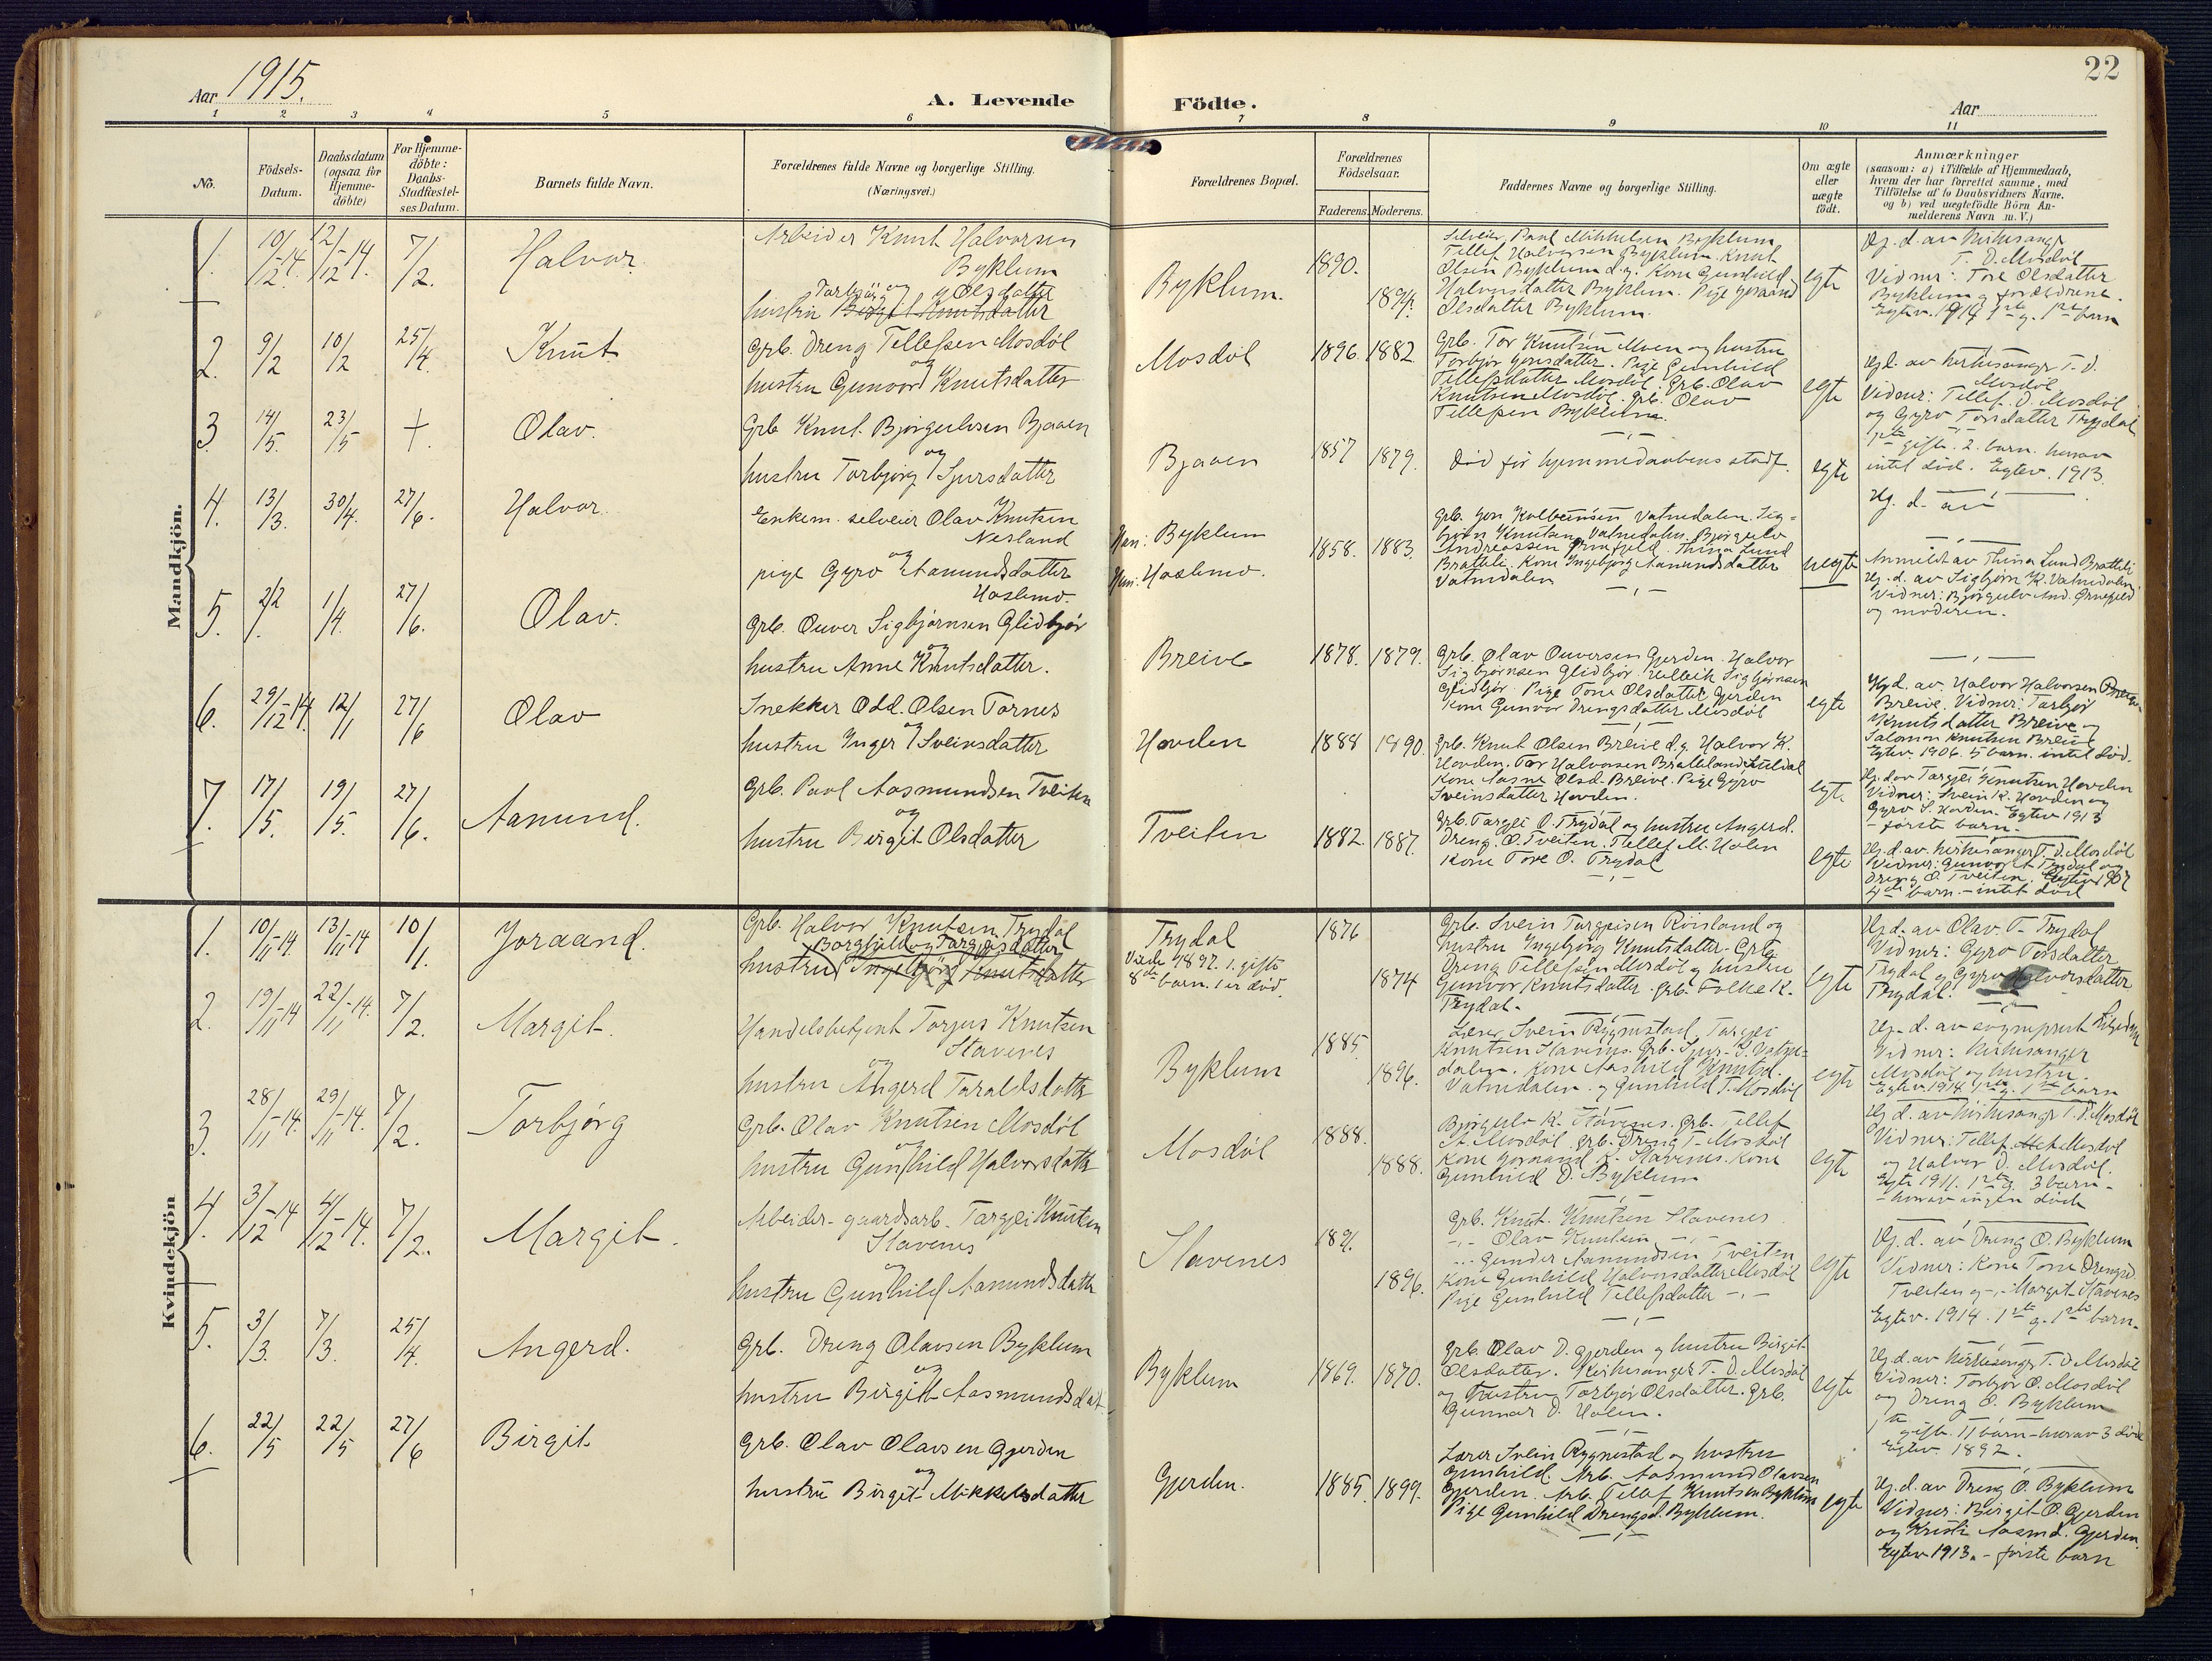 22
Aar 1915.
A. Levende Födte.
Aar
1 2 3 4 5 6 7 8 9 10 11
No.
Födsels-
Datum.
Daabsdatum
(ogsaa for
Hjemme-
döbte)
For Hjemme-
döbte:
Daabs-
Stadfæstel-
ses Datum.
Barnets fulde Navn.
Forældrenes fulde Navne og borgerlige Stilling.
(Næringsvei.)
Forældrenes Bopæl.
Forældrenes
Födselsaar.
Faderens. Moderens.
Faddernes Navne og borgerlige Stilling.
Om ægte
eller
uægte
födt.
Anmærkninger
(saasom: a) i Tilfælde af Hjemmedaab,
hvem der har forrettet samme, med
Tilföielse af to Daabsvidners Navne.
og b) ved uægtefödte Börn An-
melderens Navn m. V.)
Mandkjön.
1. 10/12-14. 12/12-14. 7/2. Halvor.
Arbeider Knut Halvorsen
Byklum
og
Torbjör Olsdatter
hustru Birgit Knutsdatter
Byklum. 1890. 1894.
Selveier Paul Mikkelsen Byklum
Tellef Halvorsen Byklum. Knut
Olsen Byklum d.y. Kone Gunhild
Halvorsdatter Byklum. Pige Joraand
Olsdatter Byklum.
egte
Hj. d. av kirkesangr
T. D. Mosdöl
Vidner: Tore Olsdatter
Byklum og forældrene.
Egtev. 1914 1ste g. 1ste barn
2. 9/2 10/2 25/4. Knut
Grb. Dreng Tellefsen Mosdöl
og
hustru Gunvor Knutsdatter
Mosdöl 1896. 1882
Grb. Tor Knutsen Moen og hustru
Torbjör Jonsdatter. Pige Gunhild
Tellefsdatter Mosdöl. Grb. Olav
Knutsen Mosdöl. Grb. Olav
Tellefsen Byklum.
egte
Hj d. av kirkesangr T. D.
Mosdöl.
Vidner: Tellef D. Mosdöl
og Gyro Torsdatter Trydal
1ste gifte. 2. barn. herav
intet död. Egtev. 1913.
3 14/5. 23/5 +. Olav.
Grb Knut Bjorgulvsen Bjaaen
og
hustru Torbjörg Sjursdatter
Bjaaen 1857 1879.
Död för hjemmedaabens stadf.
egte
Hj. d. av
4. 13/3. 30/4. 27/6. Halvor.
Enkem. selveier Olav Knutsen
Nesland
og
pige Gyro Aanundsdatter
Hoslemo.
Han: Byklum
Hun: Hoslemo.
1858. 1883.
Grb. Jon Kolbeinsen Vatnedalen. Sig-
björn Knutsen Vatnedalen. Björgulv
Andreassen Ornefjeld. Thina Lund
Bratteli. Kone Ingebjörg Aanundsdatter
Vatnedalen
uegte
Anmeldt av Thina Lund Bratteli
Hj. d. av Sigbjörn K. Vatnedalen.
Vidner: Björgulv And. Ornefjeld
og moderen.
5. 2/2 1/4. 27/6. Olav.
Grb. Ouver Sigbjörnsen Glidbjör
og
hustru Anne Knutsdatter.
Breive 1878. 1879.
Grb. Olav Ouversen Gjerden. Halvor
Sigbjörnsen Glidbjör. Helleik Sigbjörnsen
Glidbjör. Pige Tone Olsdatter Gjerden
Kone Gunvor Drengsdatter Mosdöl
egte
Hj. d. av Halvor Halvorsen
Breive. Vidner: Torbjör
Knutsdatter Breive og
Salomon Knutsen Breive
Egtev. 1906. 5 barn. intet död.
6. 29/12-14. 12/1 27/6 Olav
Snekker Odd. Olsen Tornes
og
hustru Inger Sveinsdatter
Hovden 1888 1890.
Grb. Knut Olsen Breive d.y. Halvor K.
Hovden. Tor Halvorsen Bratteland Suldal
Kone Aasne Olsd. Breive. Pige Gyro
Sveinsdatter Hovden.
egte
Hj. d av Targjei Knutsen Hovden
Vidner: Svein K. Hovden og
Gyro S. Hovden. Egtev 1913
- förste barn.
7. 17/5. 19/5. 27/6. Aanund.
Grb. Paul Aasmundsen Tveiten
og
hustru Birgit Olsdatter
Tveiten 1882. 1887.
Grb. Targjei O. Trydal og hustru Angerd.
Dreng. O. Tveiten. Tellef M. Holen
Kone Tore O. Trydal
egte
Hj. d. av kirkesanger T. D. Mosdöl
Vidner: Gunvor T. Trydal og
Dreng O. Tveiten. Egtev 1907
4de barn - intet död
Kvindekjön
1. 10/11-14 13/11-14 10/1. Joraand.
Grb. Halvor Knutsen Trydal
Borghild og Targjeisdatter
hustru Ingebjörg Knutsdatter
Trydal
Viede 1897. 1. gifte
8de barn. 1 er död.
1876 1874
Grb. Svein Targeisen Röisland og
hustru Ingebjörg Knutsdatter. Grb.
Dreng Tellefsen Mosdöl og hustru
Gunvor Knutsdatter. Grb. Folke K.
Trydal.
egte
Hj. d. av Olav T. Trydal
Vidner: Gyro Torsdatter
Trydal og Gyro Halvorsdatter
Trydal.
2. 19/11-14 22/11-14. 7/2. Margit.
Handelsbetjent Torjus Knutsen
Stavenes
og
hustru Angerd Taraldsdatter
Byklum 1885. 1896.
Lærer Svein Rygnestad. Targjei
Knutsen Stavenes. Grb. Sjur S. Vatne-
dalen. Kone Aashild Knutsd.
Vatnedalen. og Gunhild T. Mosdöl
egte
Hj. d. av sogneprest
Vidner: Kirkesanger
Mosdöl og hustru.
Egtev 1914 1ste g. 1ste barn
3. 28/11-14. 29/11-14. 7/2. Torbjörg
Grb. Olav Knutsen Mosdöl
og
hustru Gunhild Halvorsdatter
Mosdöl 1888. 1888.
Björgulv K. Stavenes. Grb. Tellef
A. Mosdöl. Grb. Dreng T. Mosdöl
Kone Joraand K. Stavenes. Kone
Gunhild D. Byklum
egte
Hj d. av kirkesangr T. D. Mosdöl
Vidner: Tellef Mosdöl
og Halvor D. Mosdöl.
Egte 1911. 1ste g. 3 barn -
- herav ingen döde
4. 3/12-14 4/12-14. 7/2. Margit.
Arbeider- gaardsarb. Targjei Knutsen
Stavenes
og
hustru Gunhild Aanundsdatter
Stavenes 1891. 1896.
Grb. Knut Knutsen Stavenes
-,- Olav Knutsen -,-
-,- Gunder Aanundsen Tveiten
Kone Gunhild Halvorsdatter Mosdöl
Pige Gunhild Tellefsdatter -,-
egte
Hj. d. av Dreng O. Byklum
Vidner: Kone Tone Drengsd.
Tveiten og -,- Margit Stavenes
Egtev. 1914. 1ste g. 1ste barn.
5. 3/3. 7/3. 25/4. Angerd.
Grb. Dreng Olavsen Byklum
og
hustru Birgit Aasmundsdat.
Byklum 1869. 1870.
Grb. Olav D. Gjerden og hustru Birgit
Olsdatter. Kirkesanger T. D. Mosdöl
og hustru Torbjör Olsdatter. Grb.
Gunnar D. Holen.
egte
Hj. d. av kirkesangr T. D. Mosdöl
Vidner: Torbjör O. Mosdöl
og Dreng O. Byklum
1ste gifte. 11 barn - herav 3 död
Egtev. 1892.
6. 22/5 22/5 27/6 Birgit
Grb. Olav Olavsen Gjerden
og
hustru Birgit Mikkelsdatter
Gjerden. 1885. 1899.
Lærer Svein Rygnestad og hustru
Gunhild. Arb. Aasmund Olavsen
Gjerden. Arb. Tellef Knutsen Byklum
Pige Gunhild Drengsd. Byklum.
egte
Hj. d. av Dreng O. Byklum
Vidner: Birgit O. Gjerden
og Kristi Aasmd. Gjerden.
Egtev 1913. - förste barn